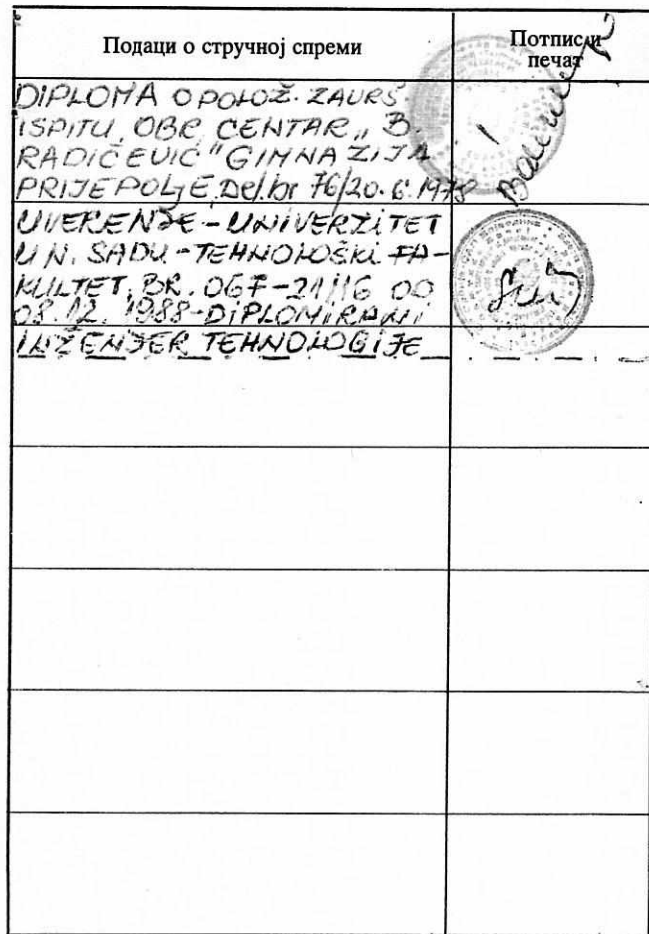 Подаци о стручној спреми
Потпис и
печат
DIPLOMA O POLOŽ. ZAVRŠ.
ISPITU, OBR. CENTAR „B.
RADIČEVIĆ" GIMNAZIJA
PRIJEPOLJE, Del. br 76/20.6.1978
UVERENJE - UNIVERZITET
U N. SADU - TEHNOLOŠKI FA-
KULTET. BR. 067-21/16 OD
08.12.1988 - DIPLOMIRANI
INŽENJER TEHNOLOGIJE